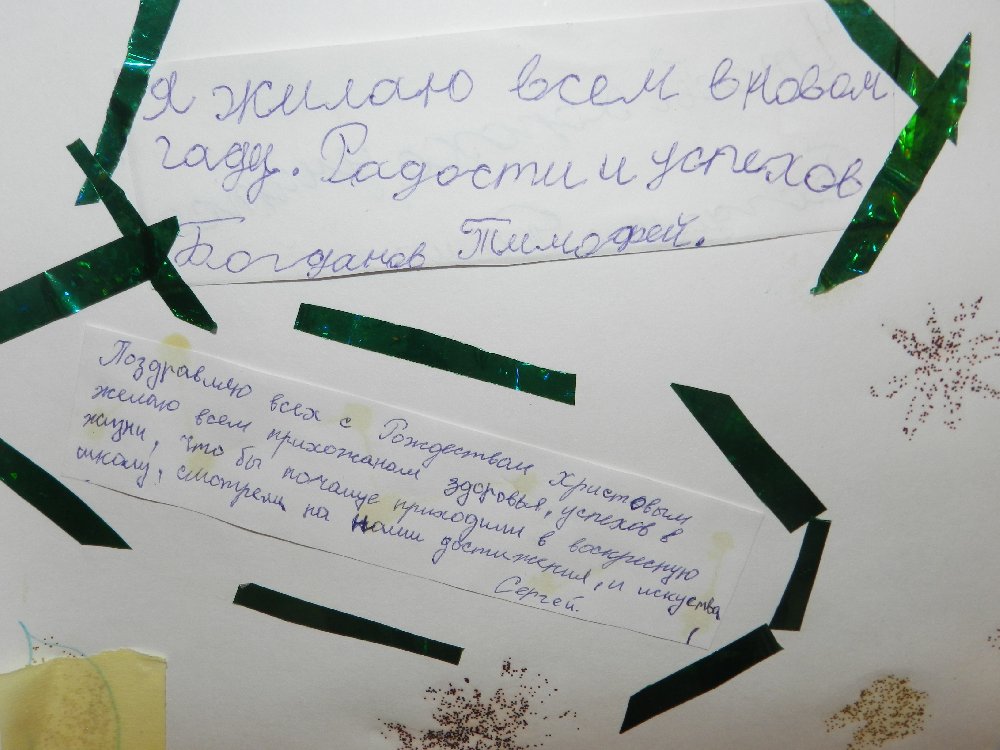 Я жилаю всем в новом
гаду. Радости и успехов
Богданов Тимофей.
Поздравляю всех с Рождеством Христовым
желаю всем прихожанам здоровья, успехов в
жизни, что бы почаще приходили в воскресную
школу, смотрели на нами достижения, и искуства
Сергей. !